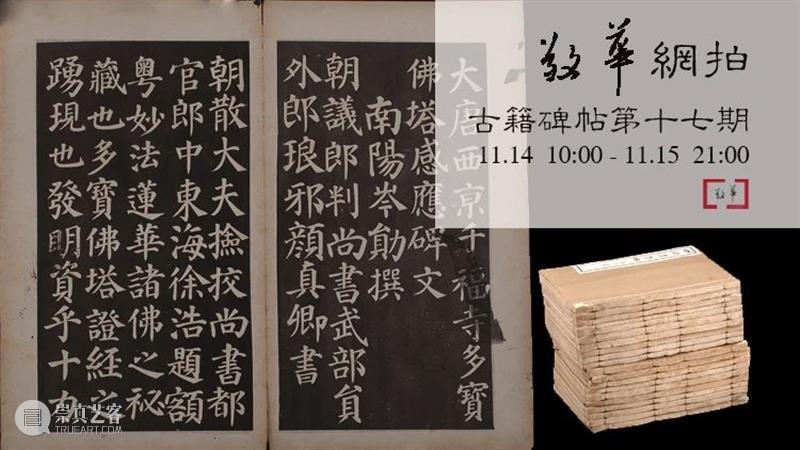 敬華網拍
古籍碑帖第十七期
11.14 10:00 - 11.15 21:00
敬華
大唐西京千福寺多寶
佛塔感應碑文
南陽岑勛撰
朝議郎判尚書武部員
外郎琅邪顏真卿書
朝散大夫撿挍尚書都
官郎中東海徐浩題額
粵妙法蓮華諸佛之秘
藏也多寶佛塔證經之
踴現也發明資乎十力
崇真艺客
TRUEART.COM